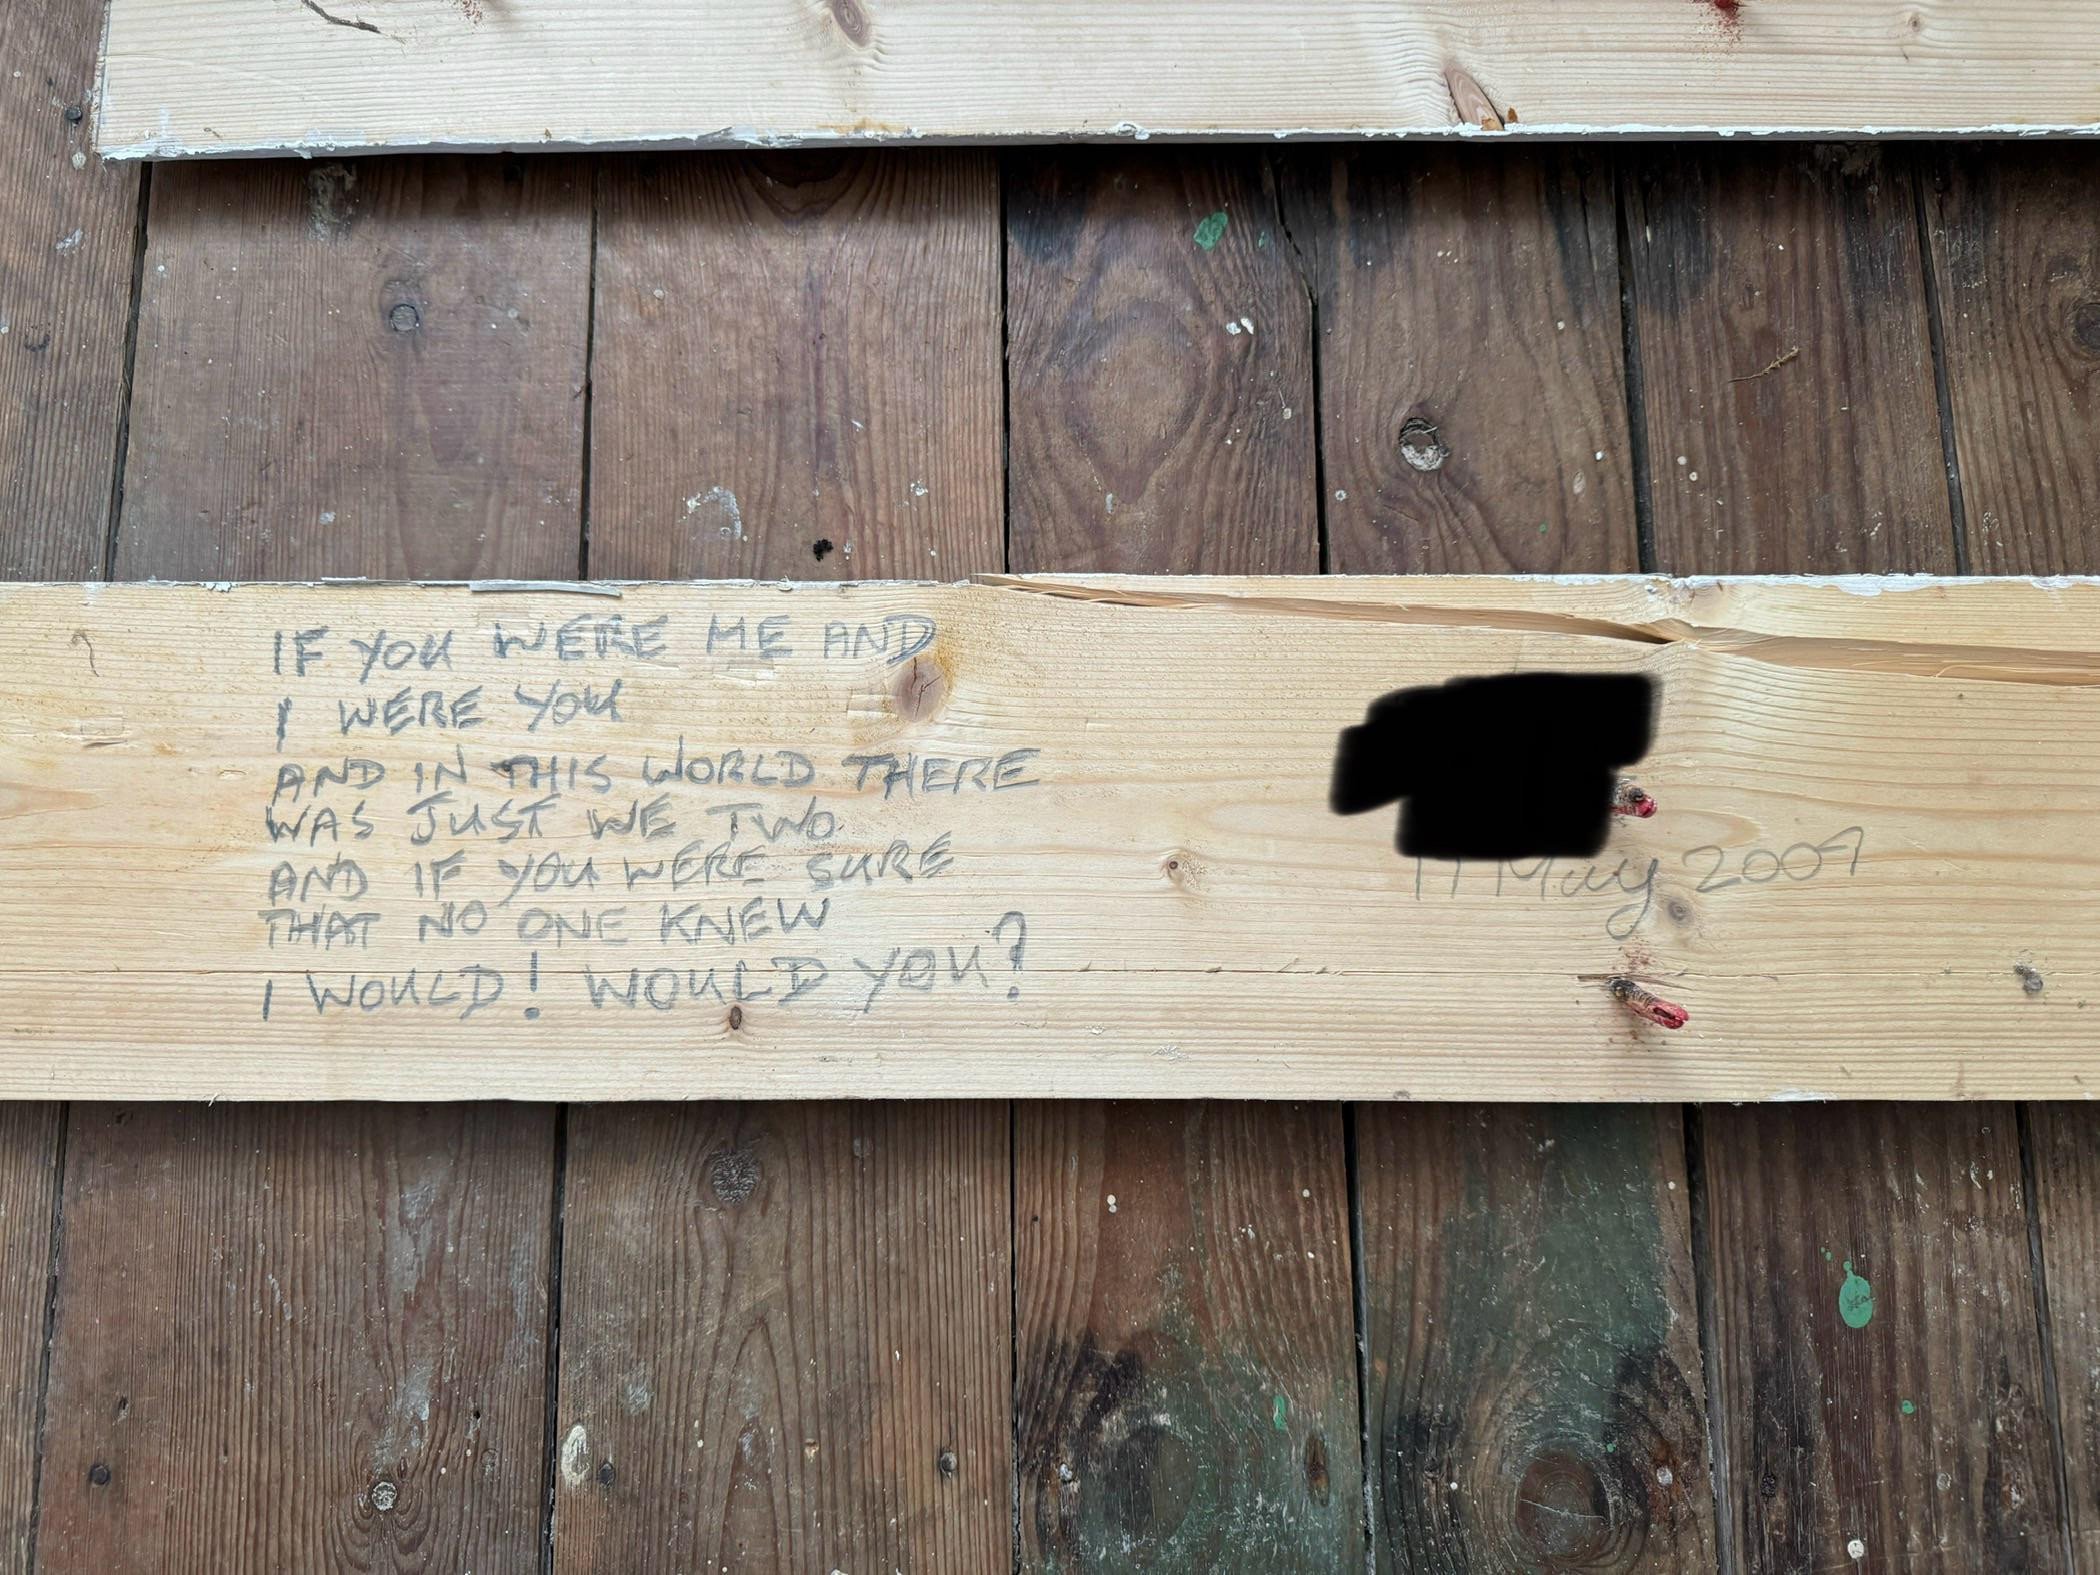 IF YOU WERE ME AND
I WERE YOU
AND IN THIS WORLD THERE
WAS JUST WE TWO
AND IF YOU WERE SURE
THAT NO ONE KNEW
I WOULD! WOULD YOU?
May 2009